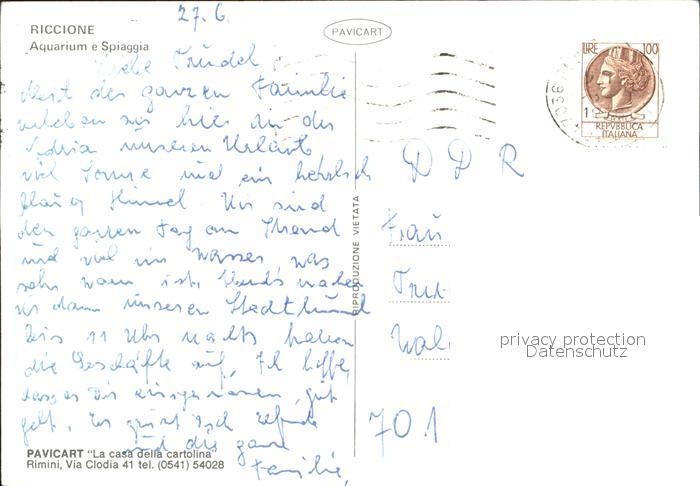 27.6.
RICCIONE
Aquarium e Spiaggia
PAVICART
LIRE 100
REPVBBLICA
ITALIANA
Liebe Trudel
Mit der ganzen Familie
erleben wir hier an der
Adria unseren Urlaub
viel Sonne und ein herrlich
blauer Himmel. Wir sind
den ganzen Tag am Strand
und viel im Wasser was
sehr warm ist. Abends machen
wir dann unseren Stadtbummel
bis 11 Uhr nachts haben
die Geschäfte auf. Ich hoffe,
dass es Dir einigermassen gut
geht. Es grüßt Dich
und die ganze
Familie,
RIPRODUZIONE VIETATA
DDR
Frau
Tru
Wal
701
privacy protection
Datenschutz
PAVICART "La casa della cartolina"
Rimini, Via Clodia 41 tel. (0541) 54028